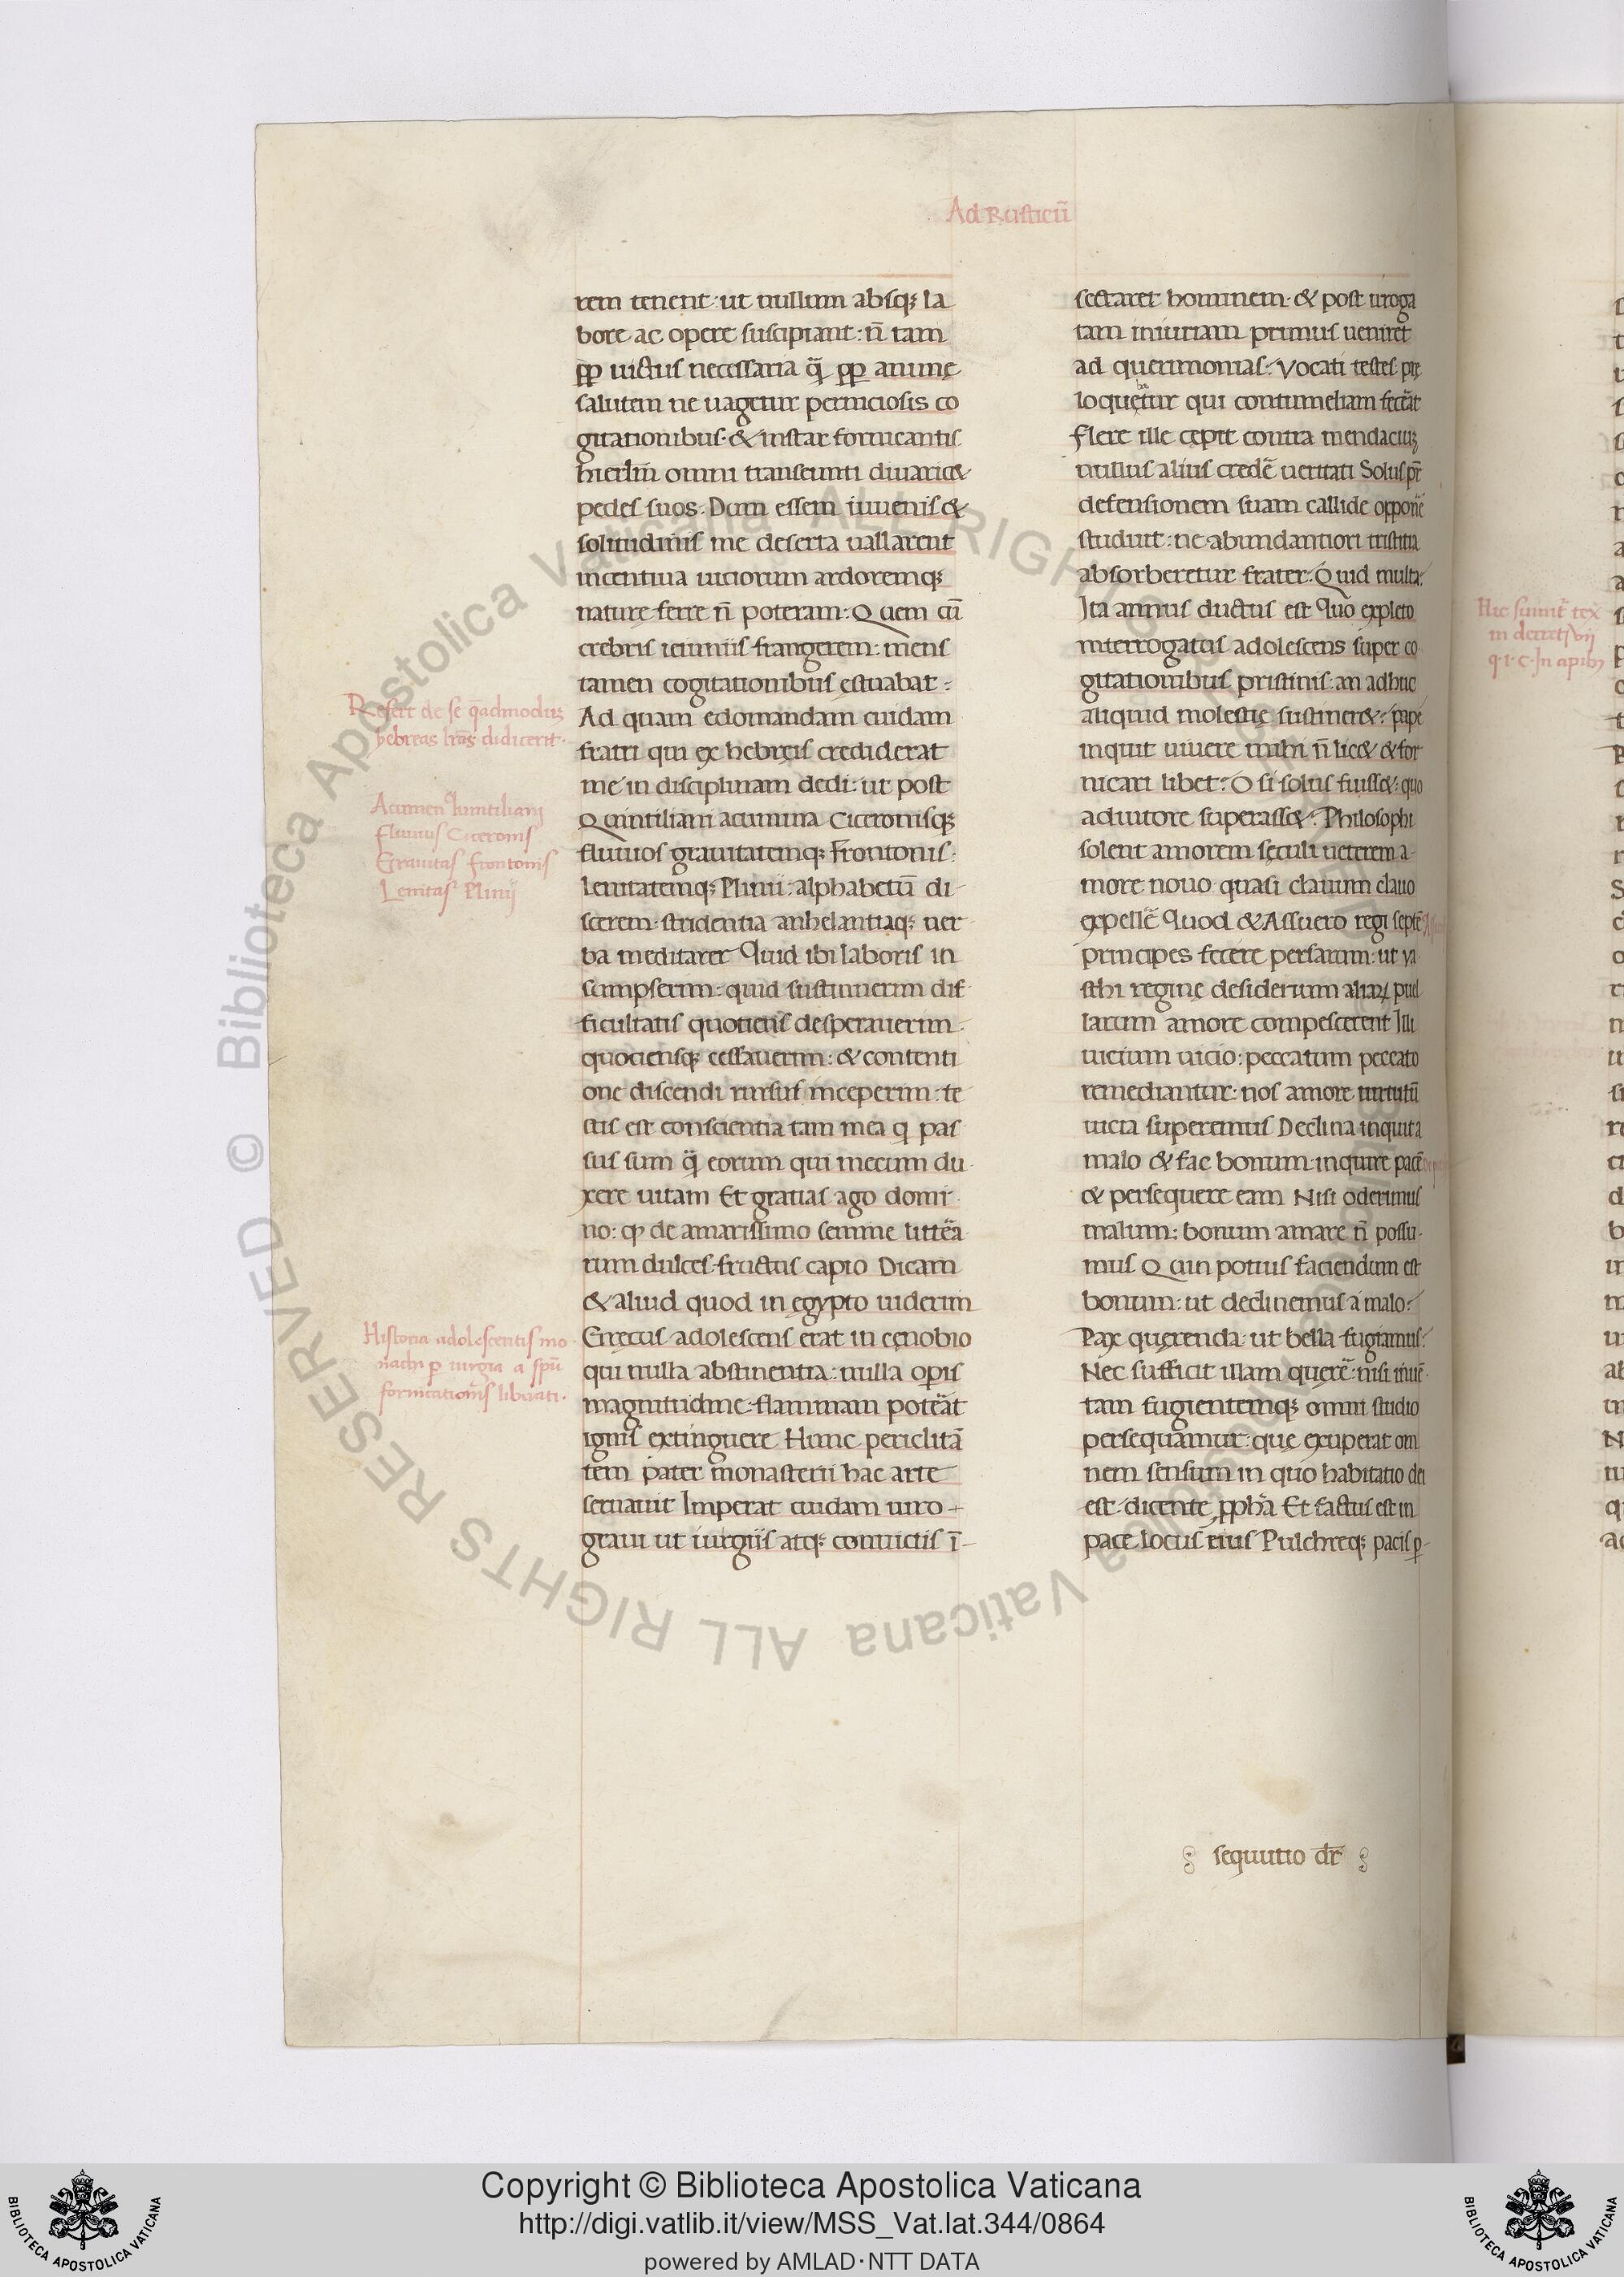 Ad Rusticū
rem tenent: ut nullum absqꝫ la
bore ac opere suscipiant: n̄ tam
ꝓp uictus necessaria q̄ ꝓp animę
salutem ne uagetur perniciosis co
gitationibus· & instar fornicantis
hierłm omni transeunti diuaric&
pedes suos. Dum essem iuuenis &
solitudinis me deserta uallarent
incentiua uiciorum ardoremqꝫ
naturę ferre n̄ poteram: Quem cū
crebris ieiuniis frangerem: mens
tamen cogitationibus ęstuabat:
Ad quam edomandam cuidam
fratri qui ex hebręis crediderat
me in disciplinam dedi: ut post
Quintiliani acumina Ciceronisqꝫ
fluuios grauitatemqꝫ Frontonis:
Lenitatemqꝫ Plinii: alphabetū di-
scerem: stridentia anhelantiaqꝫ uer
ba meditarer Quid ibi laboris in
sumpserim: quid sustinuerim dif
ficultatis quotiens desperauerim
quociensqꝫ cessauerim: & contenti
one discendi rursus inceperim: te
stis est conscientia tam mea q̨ pas
sus sum q̄ eorum qui mecum du
xere uitam Et gratias ago domi
no: ꝙ de amarissimo semine litterā
rum dulces fructus capio Dicam
& aliud quod in egypto uiderim
Grecus adolescens erat in cenobio
qui nulla abstinentia: nulla opis
magnitudine flammam poterāt
ignis extinguere Hunc periclitā
tem pater monasterii hac arte
seruauit Imperat cuidam uiro
graui ut iurgiis atqꝫ conuiciis ī-
Refert de se q̄admoduꝫ
hebreas lr̄as didicerit.
Acumen Quintiliani
fluuius Ciceronis
Grauitas Frontonis
Lenitas Plinij
Historia adolescentis mo
nachi ꝑ iurgia a spū
fornicationis liberati.
sectaret hominem· & post irroga
tam iniuriam primus ueniret
ad querimonias: Vocati testes· prę
loquebātur qui contumeliam fecerāt
Flere ille cępit contra mendaciuꝫ
nullus alius crederē ueritati Solus pr̄
defensionem suam callide opponē
studuit: ne abundantiori tristitia
absorberetur frater. Quid multa:
Ita annus ductus est Quo expleto
interrogatus adolescens super co
gitationibus pristinis: an adhuc
aliquid molestię sustiner&: pape
inquit uiuere mihi n̄ lic& & for
nicari libet: O si solus fuiss&: quo
adiutore superass&: Philosophi
solent amorem sęculi ueterem a
more nouo quasi clauum clauo
expellē Quod & Assuero regi septē
principes fecere persarum: ut va
sthi reginę desiderium aliaꝝ puel
larum amore compescerent Illi
uicium uicio: peccatum peccato
remediantur: nos amore uirtutū
uicia superemus Declina inquit a
malo & fac bonum: inquire pacē
& persequere eam Nisi oderimus
malum: bonum amare n̄ possu-
mus Quin potius faciendum est
bonum: ut declinemus a malo:
Pax querenda: ut bella fugiamus:
Nec sufficit illam querē: nisi inuē
tam fugientemqꝫ omni studio
persequamur: que exuperat om
nem sensum in quo habitatio dei
est· dicente ꝓpha Et factus est in
pace locus eius Pulchreqꝫ pacis ꝑ-
sequutio dr̄
Hic sumit tex
in decreti vij
q·1·C·In apibꝫ
© Biblioteca Apostolica Vaticana ALL RIGHTS RESERVED
Copyright © Biblioteca Apostolica Vaticana
http://digi.vatlib.it/view/MSS_Vat.lat.344/0864
powered by AMLAD·NTT DATA
BIBLIOTECA APOSTOLICA VATICANA
BIBLIOTECA APOSTOLICA VATICANA